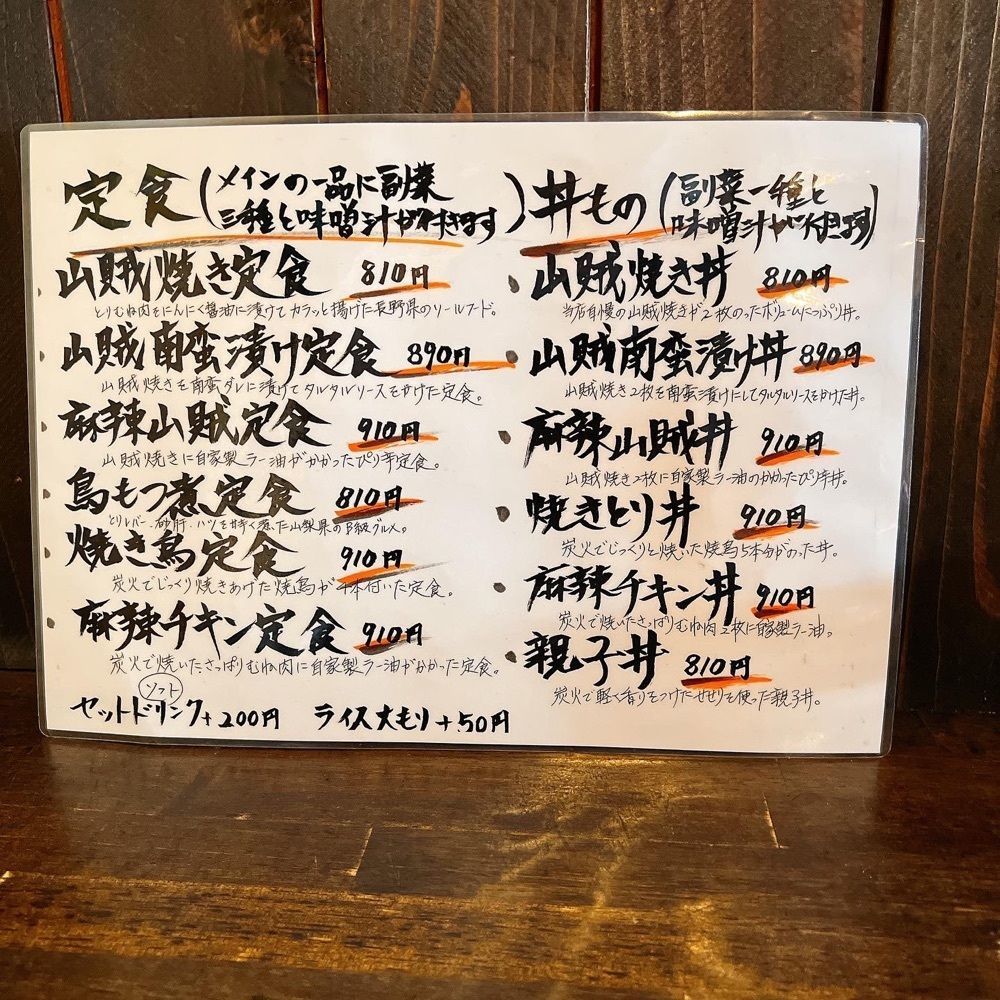 定食（メインの一品に副菜
三種と味噌汁が付きます）
山賊焼き定食 810円
とりむね肉をにんにく醤油に漬けてカラッと揚げた長野県のソールフード。
山賊南蛮漬け定食 890円
山賊焼きを南蛮ダレに漬けてタルタルソースをかけた定食。
麻辣山賊定食 910円
山賊焼きに自家製ラー油がかかったぴり辛定食。
鳥もつ煮定食 810円
とりレバー、砂肝、ハツを甘辛く煮た山梨県のB級グルメ。
焼き鳥定食 910円
炭火でじっくり焼きあげた焼鳥が4本付いた定食。
麻辣チキン定食 910円
炭火で焼いたさっぱりむね肉に自家製ラー油がかかった定食。
ソフト
セットドリンク+200円 ライス大もり+50円
丼もの（副菜一種と
味噌汁が付きます）
山賊焼き丼 810円
当店自慢の山賊焼きが2枚のったボリュームたっぷり丼。
山賊南蛮漬け丼 890円
山賊焼き2枚を南蛮漬けにしてタルタルソースをかけた丼。
麻辣山賊丼 910円
山賊焼き2枚に自家製ラー油のかかったぴり辛丼。
焼きとり丼 910円
炭火でじっくりと焼いた焼鳥5本分がのった丼。
麻辣チキン丼 910円
炭火で焼いたさっぱりむね肉2枚に自家製ラー油。
親子丼 810円
炭火で軽く香りをつけたせせりを使った親子丼。